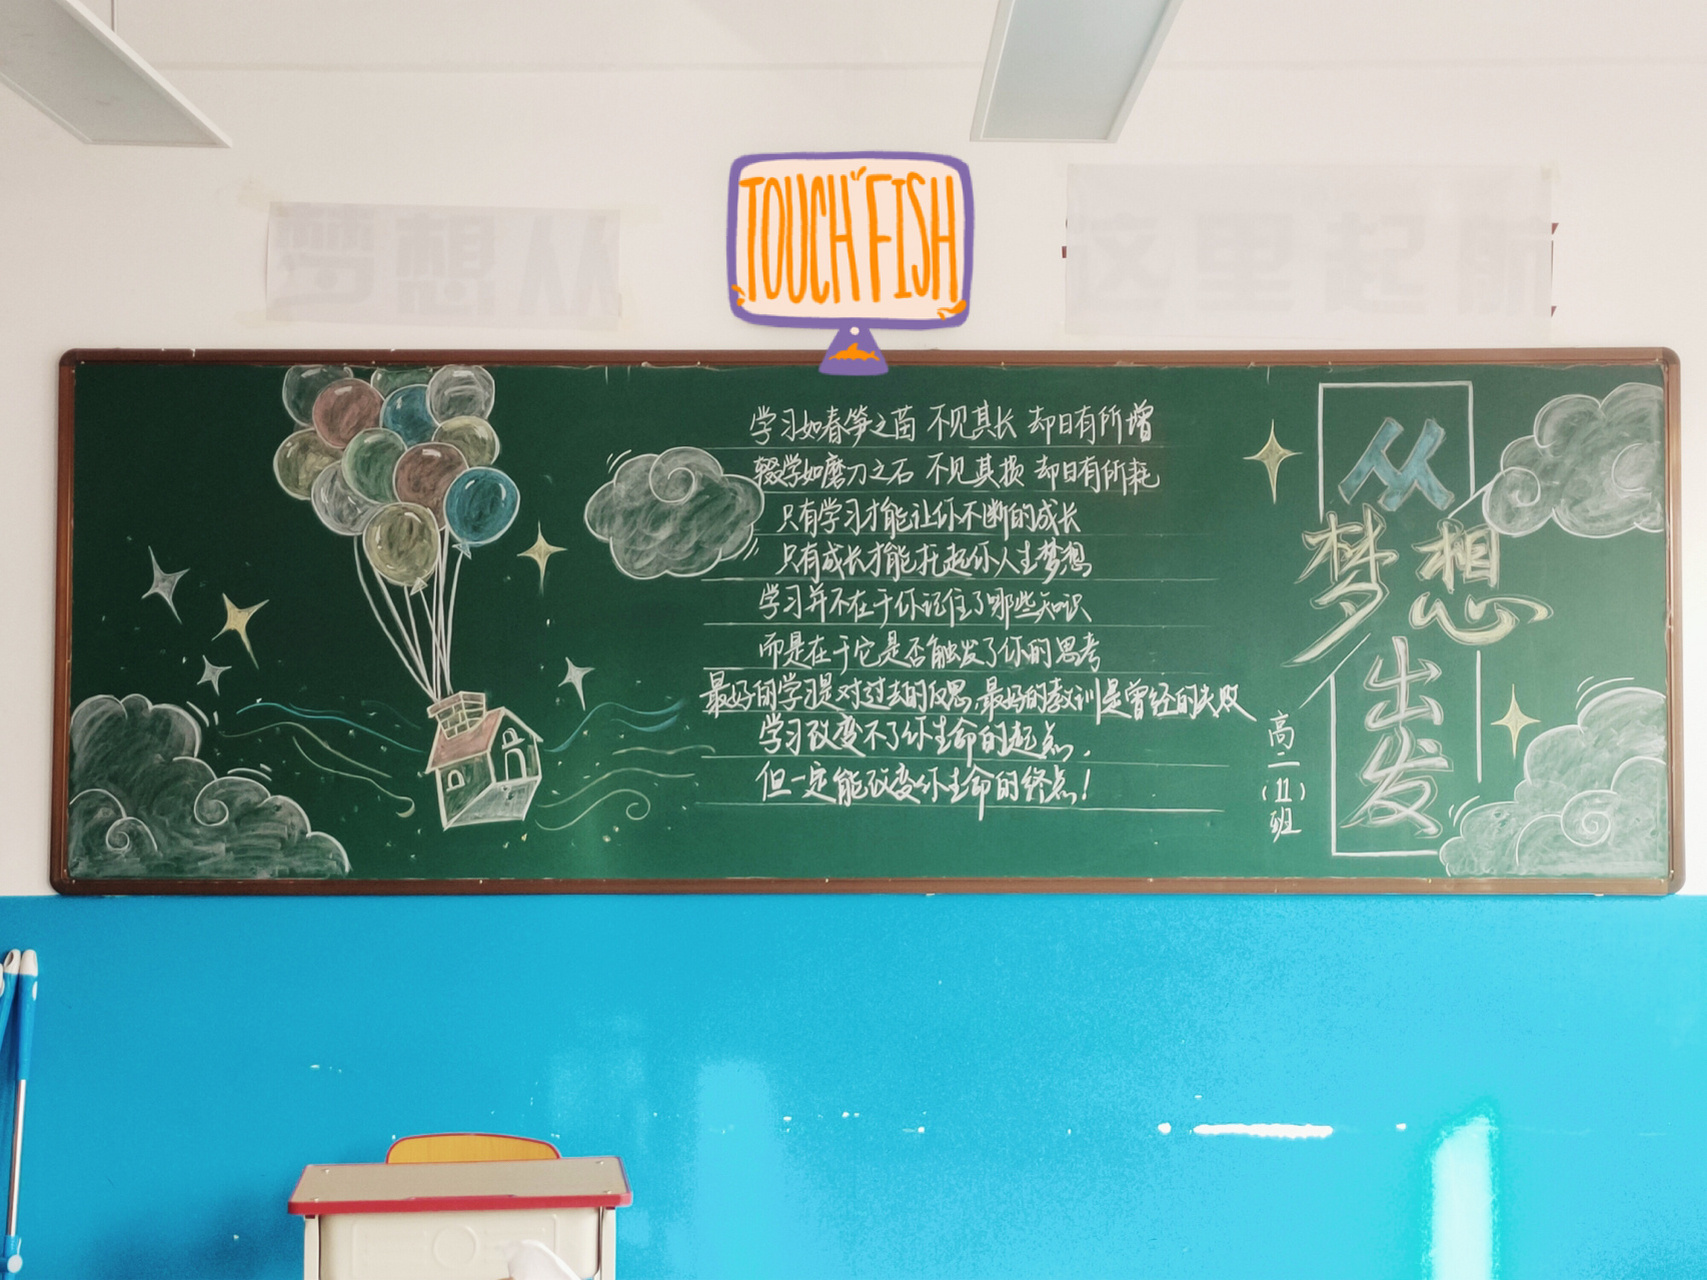 TOUCH FISH
梦想从
这里起航
学习如春笋之苗 不见其长 却日有所增
辍学如磨刀之石 不见其损 却日有所耗
只有学习才能让你不断的成长
只有成长才能托起你人生梦想
学习并不在于你记住了哪些知识
而是在于它是否触发了你的思考
最好的学习是对过去的反思,最好的教训是曾经的失败
学习改变不了你生命的起点,
但一定能改变你生命的终点!
从
梦想
出
发
高二(11)班